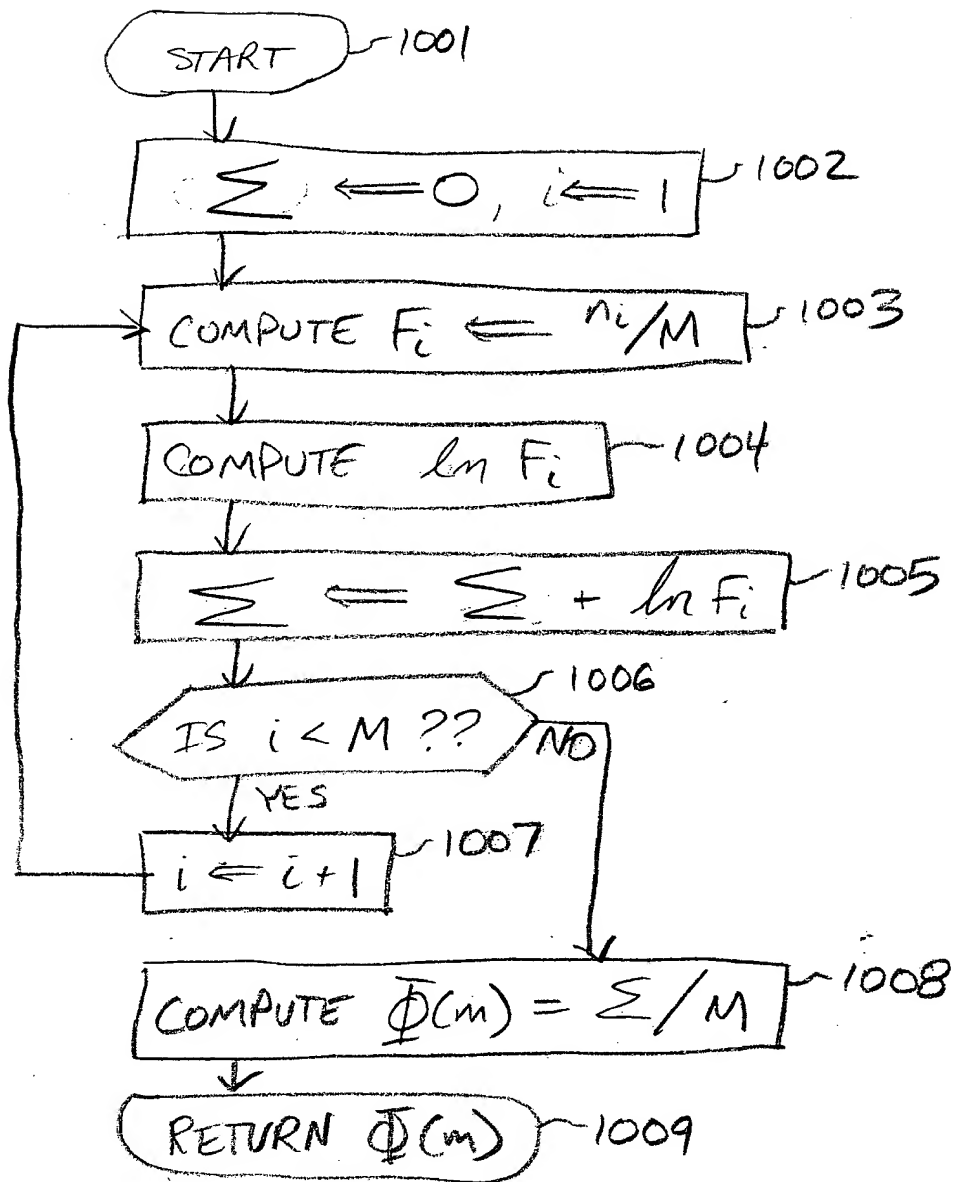 START 1001
Σ ⇐ 0, i ⇐ 1 1002
COMPUTE Fi ⇐ ni/M 1003
COMPUTE ln Fi 1004
Σ ⇐ Σ + ln Fi 1005
IS i < M ?? 1006
NO
YES
i ⇐ i + 1 1007
COMPUTE Φ(m) = Σ/M 1008
RETURN Φ(m) 1009